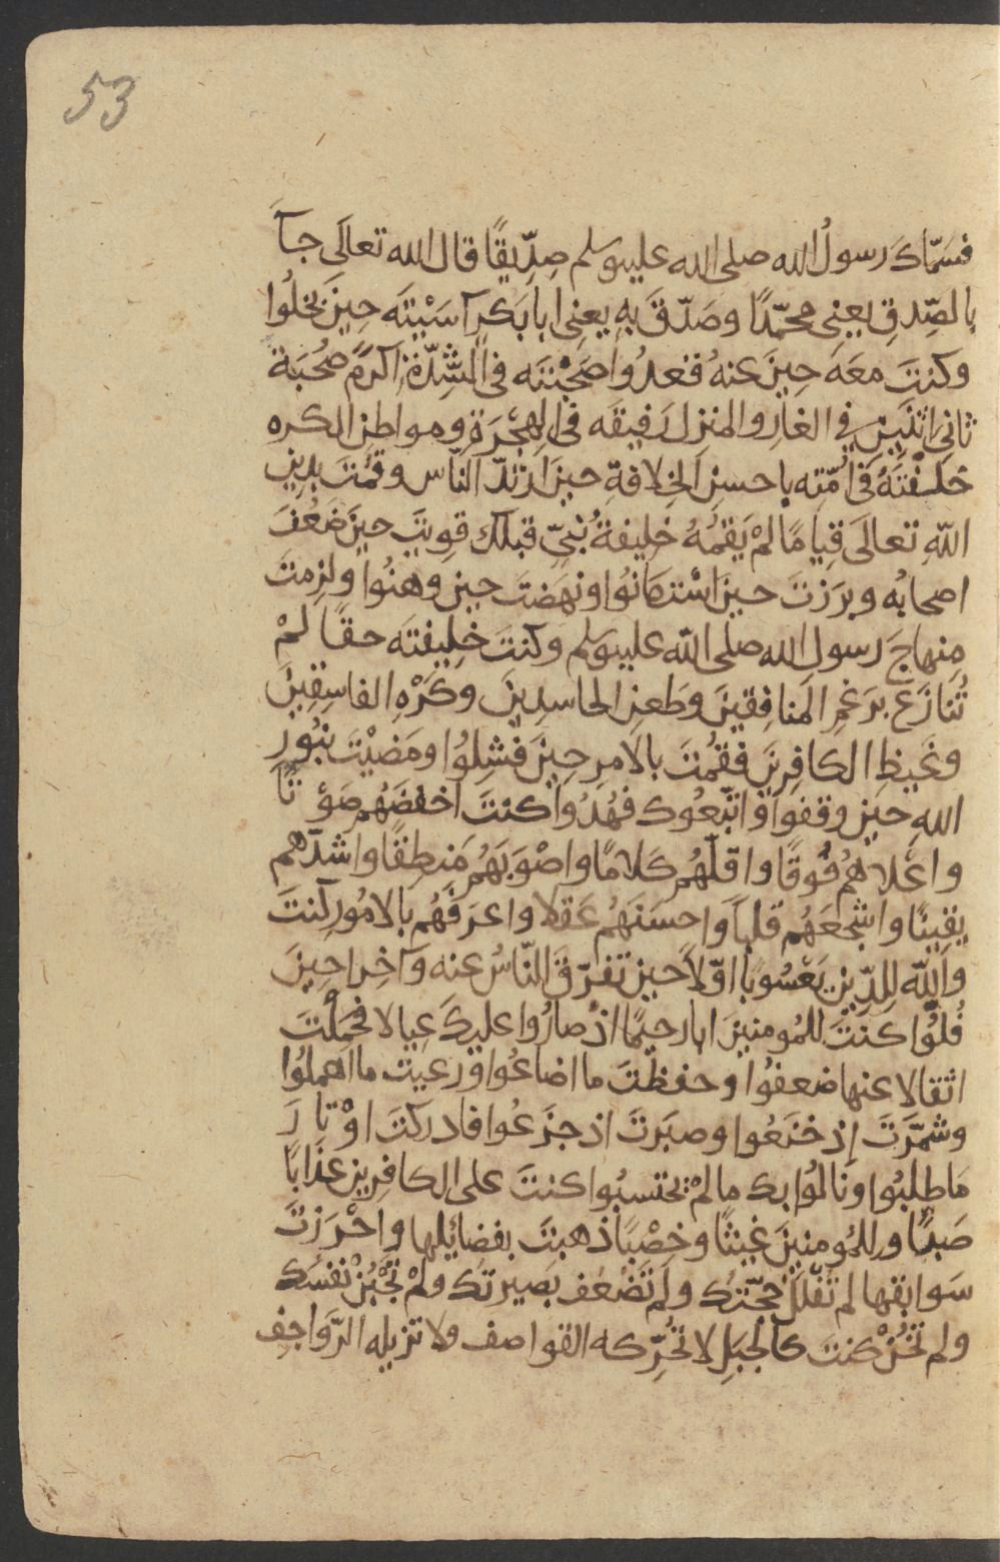 53
فسَمّاكَ رسولُ الله صلى الله عليه وسلم صِدِّيقًا قال الله تعالَى جآ
بالصِّدقِ يعنى محمّدًا وصَدّقَ بهِ يعنِى ابا بَكرٍ آسَيْتَه حِينَ بخلُوا
وكنتَ معَه حِينَ عنهُ قعدُوا صَحِبْتَه فى الشِّدّةِ اكرَمَ صُحْبَة
ثانِى اثنَينِ في الغارِ والمنزل رَفيقَه فى الهِجْرَةِ ومواطنِ الكره
خلَفْتَهُ فى اُمّتِه باحسنِ الخِلافةِ حينَ ارْتدّ النّاس وقمْتَ بدينِ
اللهِ تعالَى قِيامًا لمْ يَقمْهُ خليفةُ نبىٍّ قبلَك قوِيتَ حينَ ضعُفَ
اصحابُه وبرَزتَ حينَ اسْتكانُوا ونهَضتَ حين وهنُوا ولزِمتَ
مِنهاجَ رسولِ الله صلى الله عليه وسلم وكنتَ خلِيفتَه حقًا لمْ
تُنازَعْ برَغمِ المنافِقينَ وطَعنِ الحاسدِينَ وكَرْهِ الفاسِقِينَ
وغَيظِ الكافِرينَ فقمْتَ بالامرِ حِينَ فشِلُوا ومَضيْتَ بنُورِ
اللهِ حينَ وقفوا واتّبعُوك فهُدُوا كنتَ اخفضَهُم صَوْتًا
واعْلاهُم فُوقًا واقلّهُم كلامًا واصْوَبَهُم مَنطِقًا واشدّهم
يقِينًا واشجعَهُم قلبًا واحسَنَهُم عَقلا واعرَفَهُم بالامُورِ كنتَ
واللهِ للدِّينِ يَعْسُوبًا اوّلاً حينَ تفرّقَ النّاسُ عنه وآخِرا حِينَ
فُلُّوا كنتَ للمُومنينَ ابا رحيمًا اذْ صارُوا عليكَ عِيالا فحَمَلْتَ
اثقالا عنها ضعفوُا وحفظْتَ ما اضاعُوا ورعيتَ ما اهملُوا
وشمَّرَتَ إذ خنَعُوا وصبَرتَ اذ جزَعُوا فادركتَ اوْتارَ
مَا طلبُوا ونالُوا بك ما لمْ يحتسبُوا كنتَ على الكافرِينَ عذابًا
صَبًّا وللمُومنينَ غَيثًا وخِصْبًا ذهبتَ بفضائلِها واحْرَزتَ
سَوابقها لم تَفْلَلْ حُجّتُك ولم تَضْعُف بصيرتُك ولمْ تَجْبُنْ نفسُك
ولم تَخُنْ كنتَ كالجبَلِ لا تُحرِّكه القواصف ولا تزيله الرَّواجِفِ